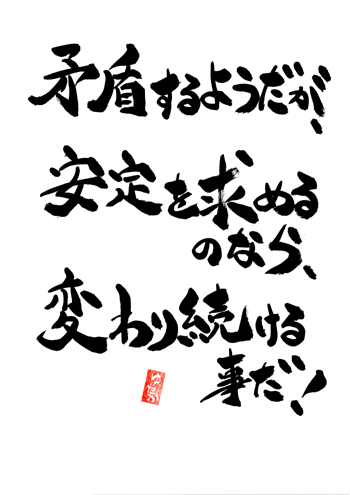 矛盾するようだが、
安定を求める
のなら、
変わり続ける
事だ!